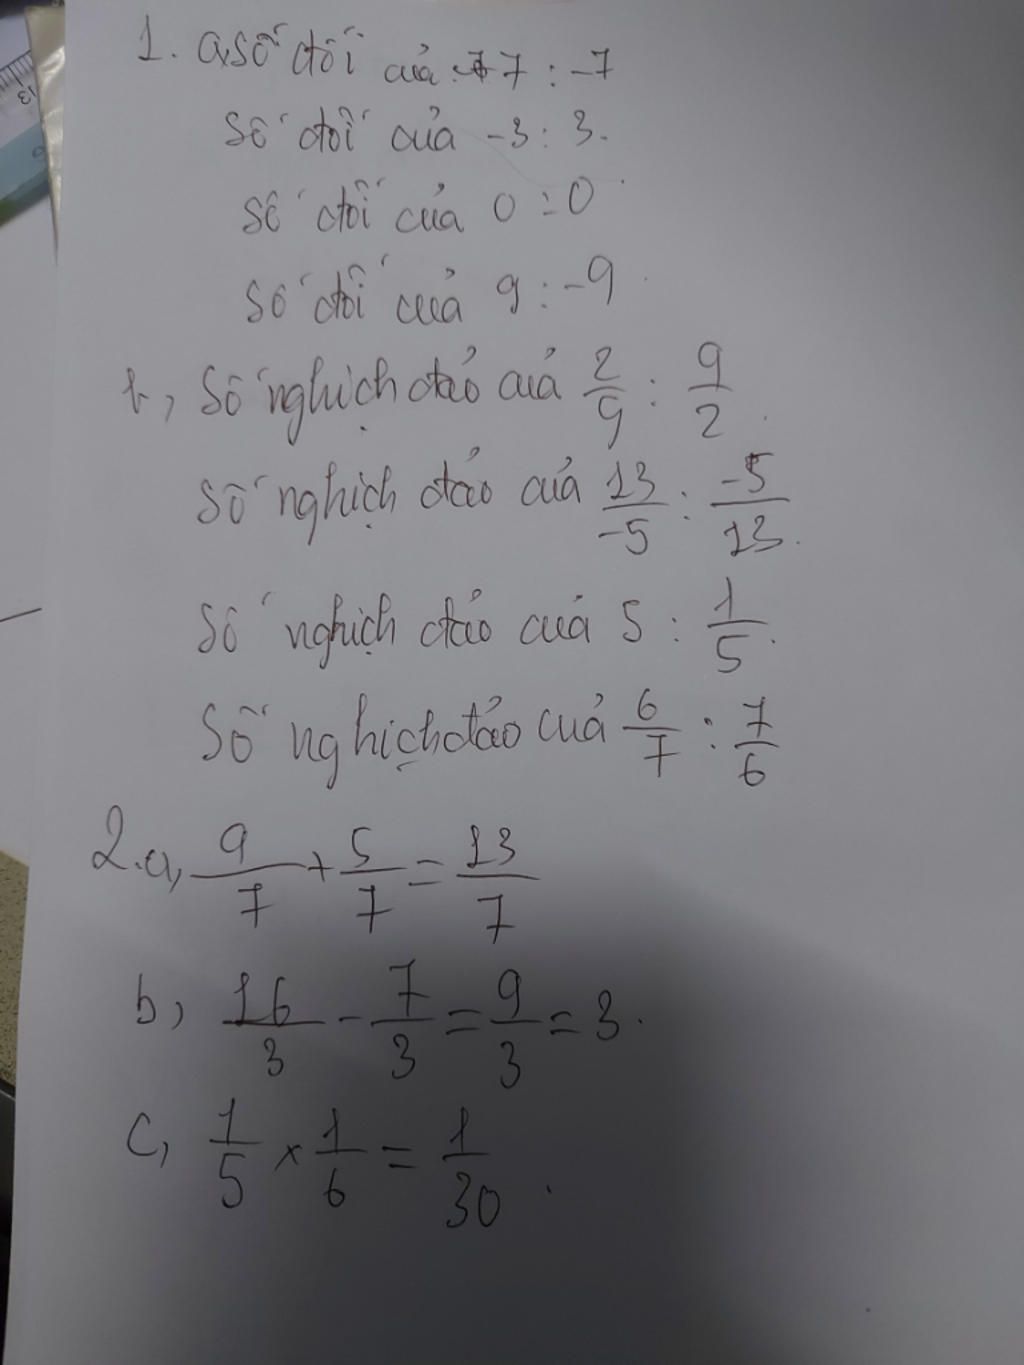 1. a, số đối của 7 : -7
số đối của -3 : 3.
số đối của 0 : 0
số đối của 9 : -9
b, Số nghịch đảo của 2/9 : 9/2.
Số nghịch đảo của 13/-5 : -5/13.
Số nghịch đảo của 5 : 1/5.
Số nghịch đảo của 6/7 : 7/6
2. a, 9/7 + 5/7 = 13/7
b, 16/3 - 7/3 = 9/3 = 3.
c, 1/5 × 1/6 = 1/30.